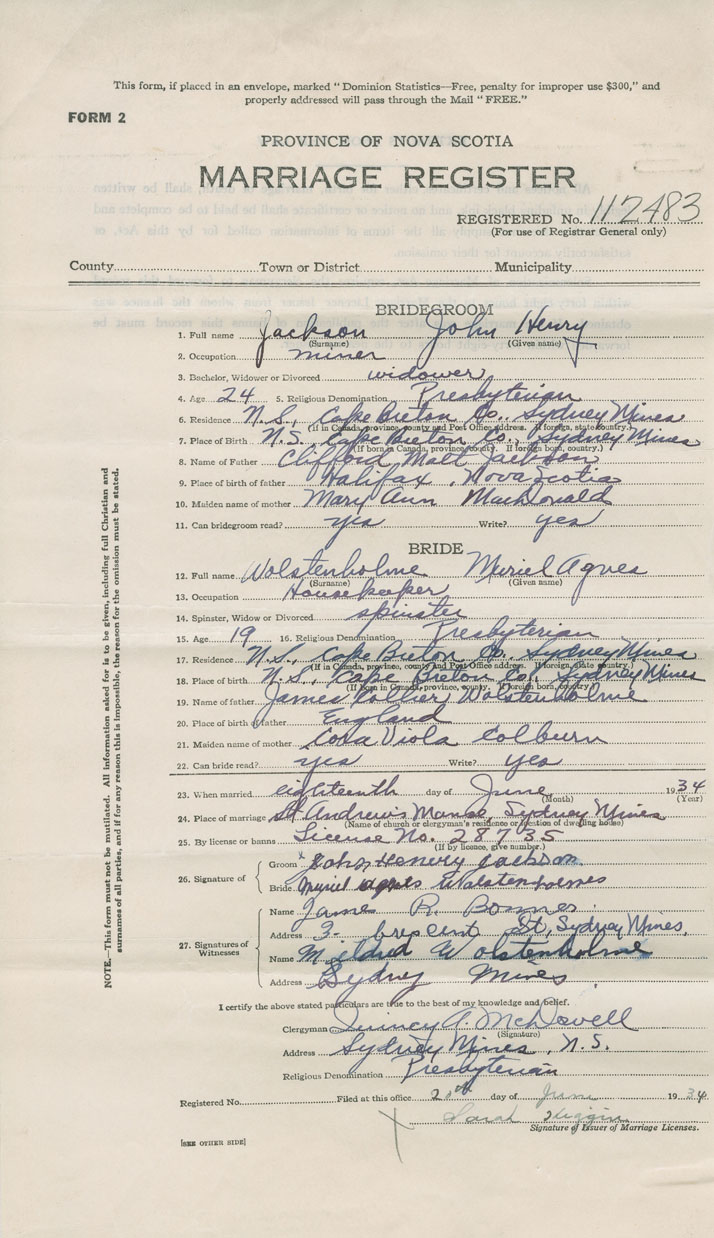 This form, if placed in an envelope, marked "Dominion Statistics—Free, penalty for improper use $300," and
properly addressed will pass through the Mail "FREE."
FORM 2
PROVINCE OF NOVA SCOTIA
MARRIAGE REGISTER
REGISTERED No. 112483
(For use of Registrar General only)
County Town or District Municipality
BRIDEGROOM
1. Full name Jackson John Henry
(Surname) (Given name)
2. Occupation miner
3. Bachelor, Widower or Divorced widower
4. Age 24 5. Religious Denomination Presbyterian
6. Residence N.S., Cape Breton Co., Sydney Mines
(If in Canada, province, county and Post Office address. If foreign, state country.)
7. Place of Birth N.S. Cape Breton Co., Sydney Mines
(If born in Canada, province, county. If foreign born, country.)
8. Name of Father Clifford Matt Jackson
9. Place of birth of father Halifax, Nova Scotia
10. Maiden name of mother Mary Ann MacDonald
11. Can bridegroom read? yes Write? yes
BRIDE
12. Full name Wolstenholme Muriel Agnes
(Surname) (Given name)
13. Occupation Housekeeper
14. Spinster, Widow or Divorced spinster
15. Age 19 16. Religious Denomination Presbyterian
17. Residence N.S., Cape Breton Co. Sydney Mines
(If in Canada, province, county and Post Office address. If foreign, state country.)
18. Place of birth N.S., Cape Breton Co., Sydney Mines
(If born in Canada, province, county. If foreign born, country.)
19. Name of father James Collier Wolstenholme
20. Place of birth of father England
21. Maiden name of mother Cora Viola Colburn
22. Can bride read? yes Write? yes
23. When married eighteenth day of June 1934
(Month) (Year)
24. Place of marriage St Andrew's Manse, Sydney Mines
(Name of church or clergyman's residence or location of dwelling house)
25. By license or banns License No. 28735
(If by licence, give number.)
26. Signature of
Groom x John Henery Jackson
Bride Muriel agnes Wolstenholmes
27. Signatures of Witnesses
Name James R. Bonnes
Address 3- Crescent St, Sydney Mines,
Name Mildred Wolstenholme
Address Sydney Mines
I certify the above stated particulars are true to the best of my knowledge and belief.
Clergyman Quincy A. McDowell
(Signature)
Address Sydney Mines, N.S.
Religious Denomination Presbyterian
Registered No. Filed at this office 20th day of June 1934
Sarah Higgins
Signature of Issuer of Marriage Licenses.
[SEE OTHER SIDE]
NOTE.—This form must not be mutilated. All information asked for is to be given, including full Christian and
surnames of all parties, and if for any reason this is impossible, the reason for the omission must be stated.